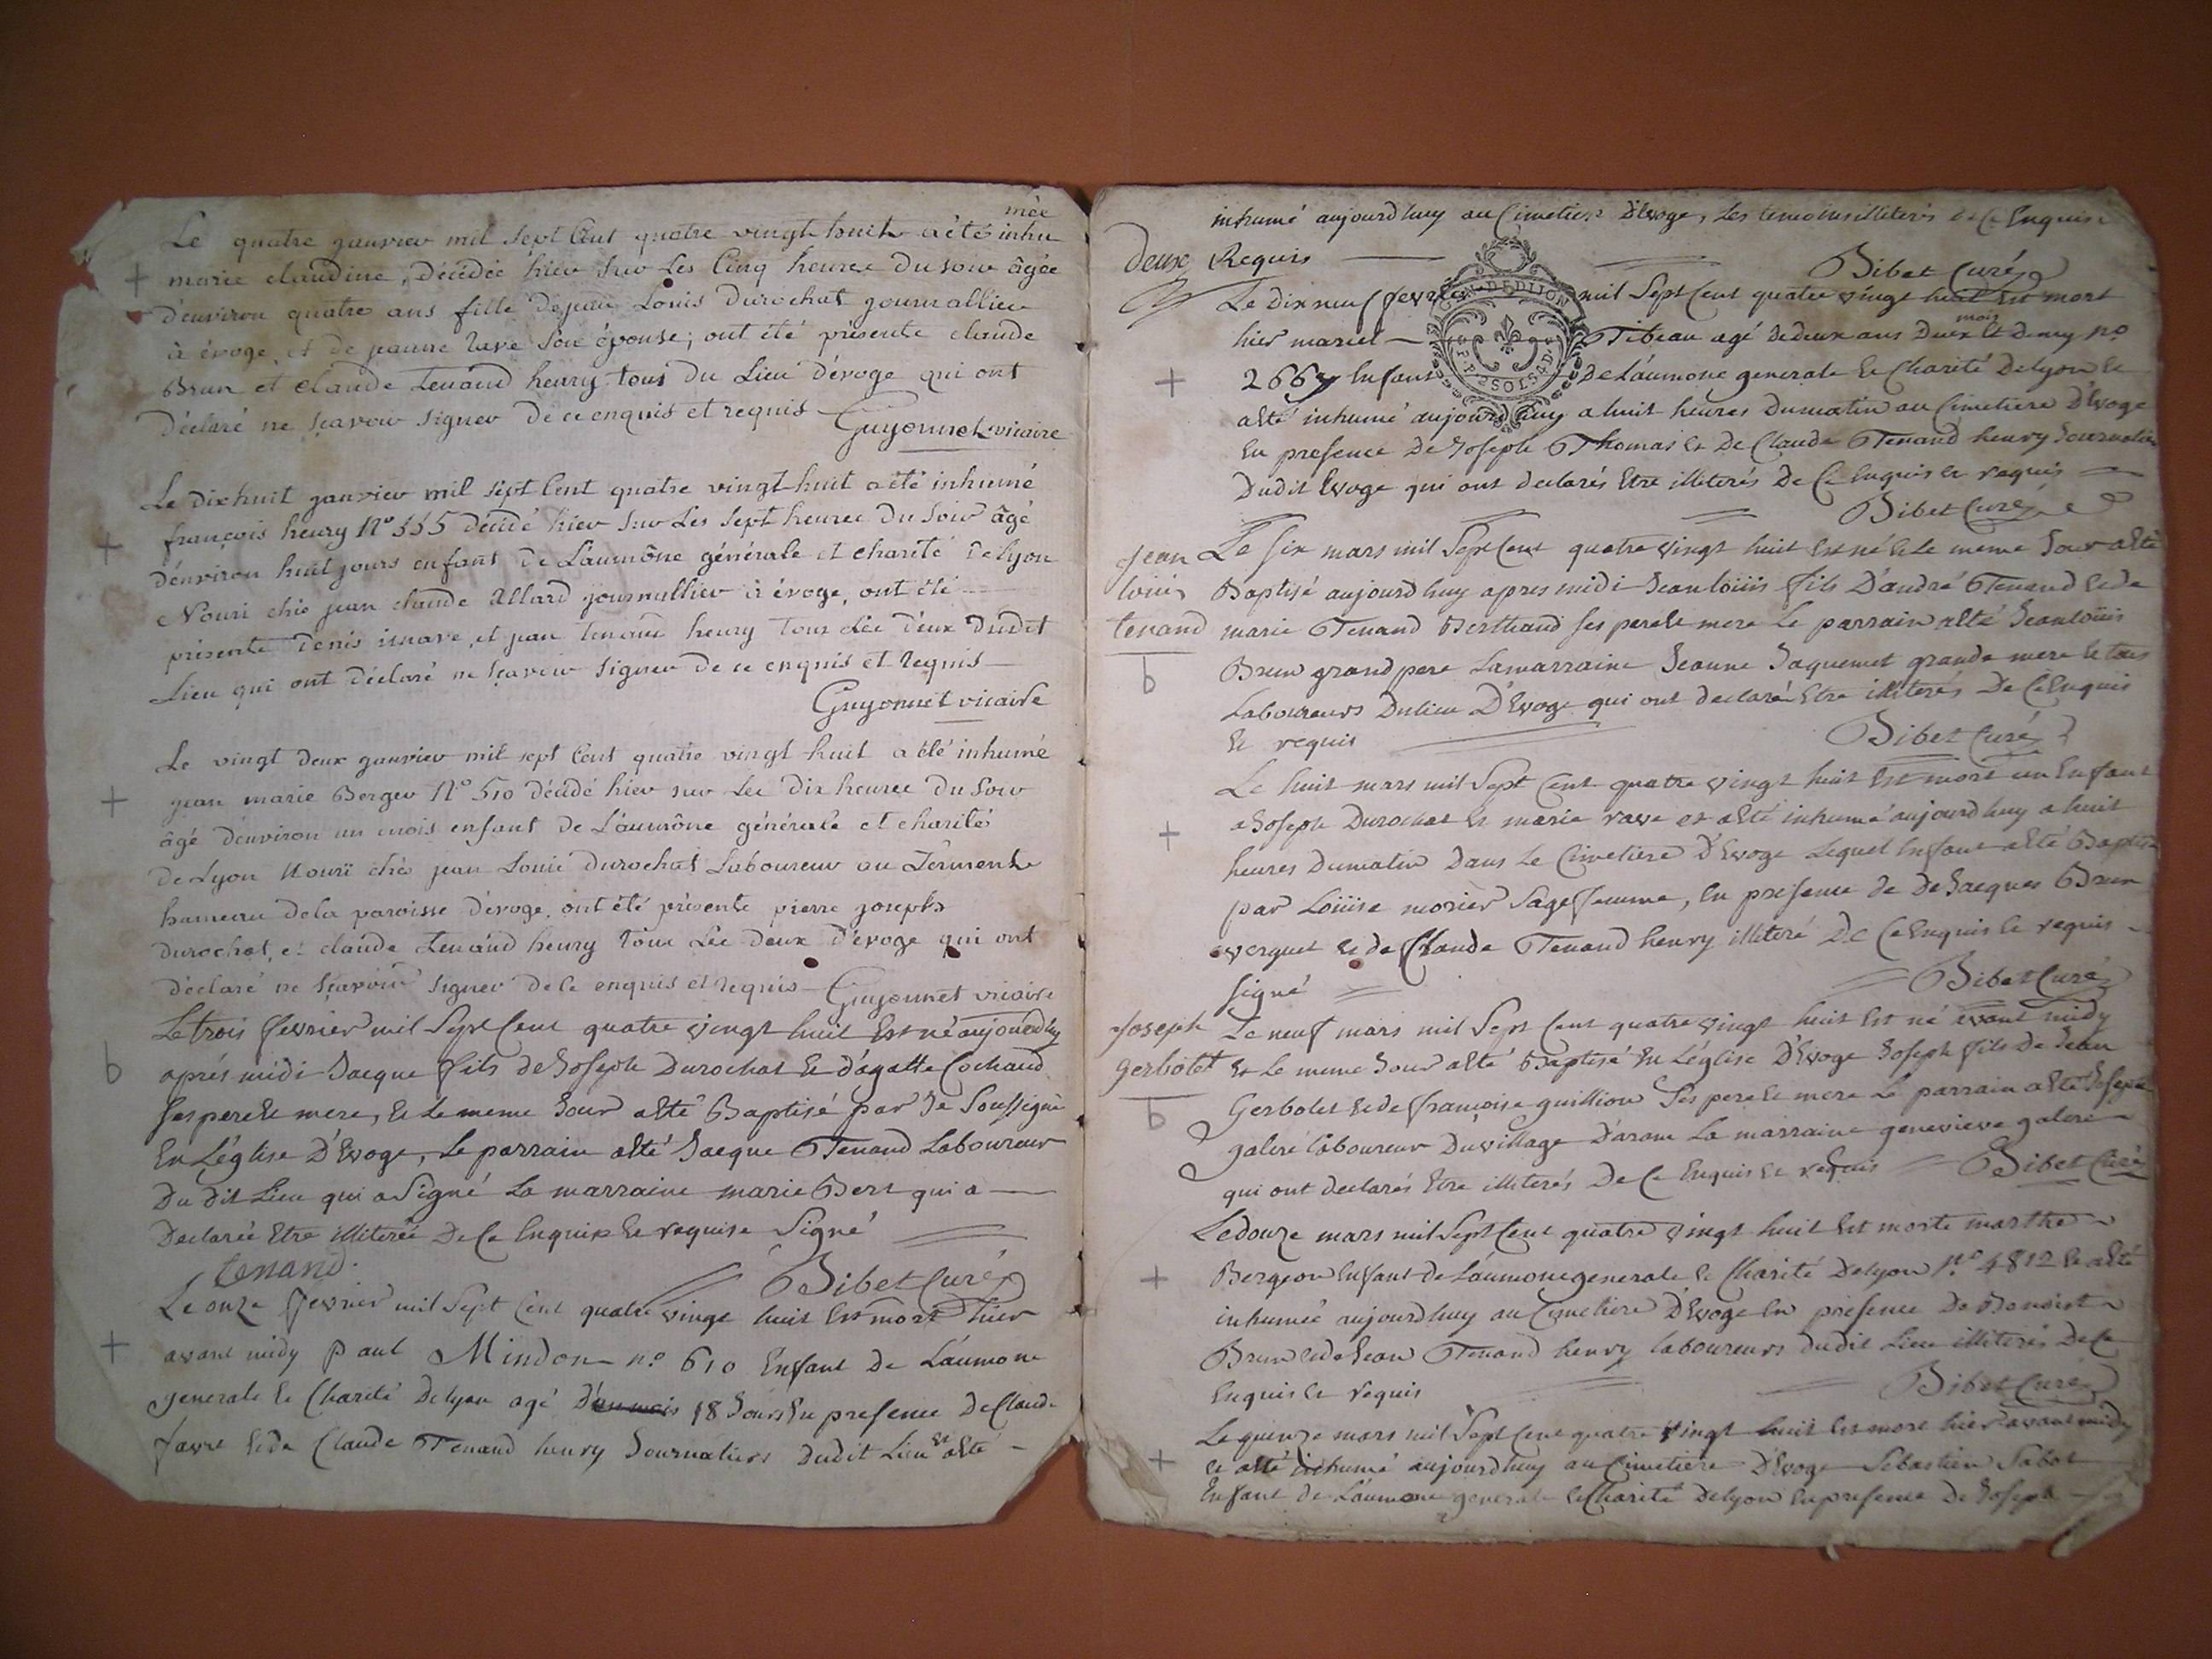 mée
Le quatre janvier mil sept Cent quatre vingt huit a été inhu
marie claudine, Décédée hier sur Les Cinq heures Du soir âgée
d'environ quatre ans fille de jean Louis Durochat journallier
à évoge, et de jeanne Rave son épouse; ont été présents claude
Brun et claude Tenand henry tous Du Lieu d'évoge qui ont
Déclaré ne sçavoir signer de ce enquis et requis
Guyonnet vicaire
Le Dix huit janvier mil sept Cent quatre vingt huit a été inhumé
françois henry N° 555 décédé hier sur Les sept heures Du soir âgé
d'environ huit jours enfant de L'aumône générale et charité de Lyon
Nouri chés jean claude Allard journallier à évoge, ont été
présents Denis , et jean tenand henry tous les deux Dudit
Lieu qui ont Déclaré ne sçavoir signer de ce enquis et requis
Guyonnet vicaire
Le vingt deux janvier mil sept Cent quatre vingt huit a été inhumé
jean marie Berger N° 510 décédé hier sur Les Dix heures Du soir
âgé d'environ un mois enfant de L'aumône générale et charité
de Lyon Nouri chés jean Louis durochat Laboureur au Terment
hameau de la paroisse d'évoge, ont été présents pierre joseph
Durochat, et claude Tenand henry tous Les deux d'évoge qui ont
déclaré ne sçavoir signer de Ce enquis et requis Guyonnet vicaire
b
Le trois fevrier mil Sept Cent quatre vingt huit Est né aujourdhuy
aprés midi Jacque fils de Joseph Durochat Et d'agatte Cochaud
ses pere Et mere, Et Le meme Jour a Eté Baptisé par Je Soussigné
En L'église D'Evoge, Le parrain a Eté Jacque Tenand Laboureur
Du dit Lieu qui a Signé La marraine marie Bert qui a
Declarée Etre illiterée De Ce Enquise Et requise Signé
tenand.
Bibet Curé
Le onze fevrier mil Sept Cent quatre vingt huit Est mort hier
avant midy paul Mindon n° 610 Enfant De L'aumone
generale Et Charité De Lyon agé D'un mois 18 Jours En presence De Claude
favre Et de Claude Tenand henry Journaliers Dudit Lieu Et a Eté
inhumé aujourdhuy au Cimetiere D'Evoge, Les temoins illiterés de Ce Enquis
deux
Requis
Bibet Curé
GEN. DE DIJON
Le dix neuf fevrier mil Sept Cent quatre vingt huit Est mort
mois
hier marcel Tibeau agé de deux ans Deux Et Demy n°
2667 Enfant De L'aumone generale Et Charité De Lyon Et
a Eté inhumé aujourdhuy a huit heures Du matin au Cimetiere D'Evoge
En presence De Joseph Thomas Et De Claude Tenand henry Journaliers
Dudit Evoge qui ont declarés Etre illiterés De Ce Enquis Et requis
Bibet Curé
Jean
Loüis
tenand
b
Le six mars mil Sept Cent quatre vingt huit Est né Et Le meme Jour a Eté
Baptisé aujourdhuy apres midi Jean loüis fils D'andré Tenand Et de
marie Tenand Berthaud ses pere Et mere Le parrain a Eté Jean loüis
Brun grand pere La marraine Jeanne Jaquemet grande mere Et tous
Laboureurs Du lieu D'Evoge qui ont declaré Etre illiterés De Ce Enquis
Et requis
Bibet Curé
Le huit mars mil Sept Cent quatre vingt huit Est mort un Enfant
a Joseph Durochat Et marie rave et a Eté inhumé aujourdhuy a huit
heures Du matin Dans Le Cimetiere D'Evoge Lequel Enfant a Eté Baptisé
par Loüise morier Sage femme, En presence de De Jacques Brun
verguet Et de Claude Tenand henry illiteré De Ce Enquis Et requis
signé
Bibet Curé
Joseph
gerbolet
b
Le neuf mars mil Sept Cent quatre vingt huit Est né avant midy
Et Le meme Jour a Eté Baptisé En L'église D'Evoge Joseph fils De Jean
Gerbolet Et de françoise guillion Ses pere Et mere Le parrain a Eté Joseph
galere laboureur Du village D'aranc La marraine genevieve galere
qui ont declarés Etre illiterés De Ce Enquis Et requis Bibet Curé
Le douze mars mil Sept Cent quatre vingt huit Est morte marthe
Bergeon Enfant de L'aumone generale Et Charité De Lyon N° 4812 Et a Eté
inhumée aujourdhuy au Cimetiere D'Evoge En presence De Benoist
Brun Et de Jean Tenand henry laboureurs dudit Lieu illiterés De Ce
Enquis Et Requis
Bibet Curé
Le quinze mars mil Sept Cent quatre vingt huit Est mort hier avant midy
Et a Eté inhumé aujourdhuy au Cimetiere D'Evoge Sebastien Sabot
Enfant de L'aumone generale Et Charité De Lyon En presence De Joseph